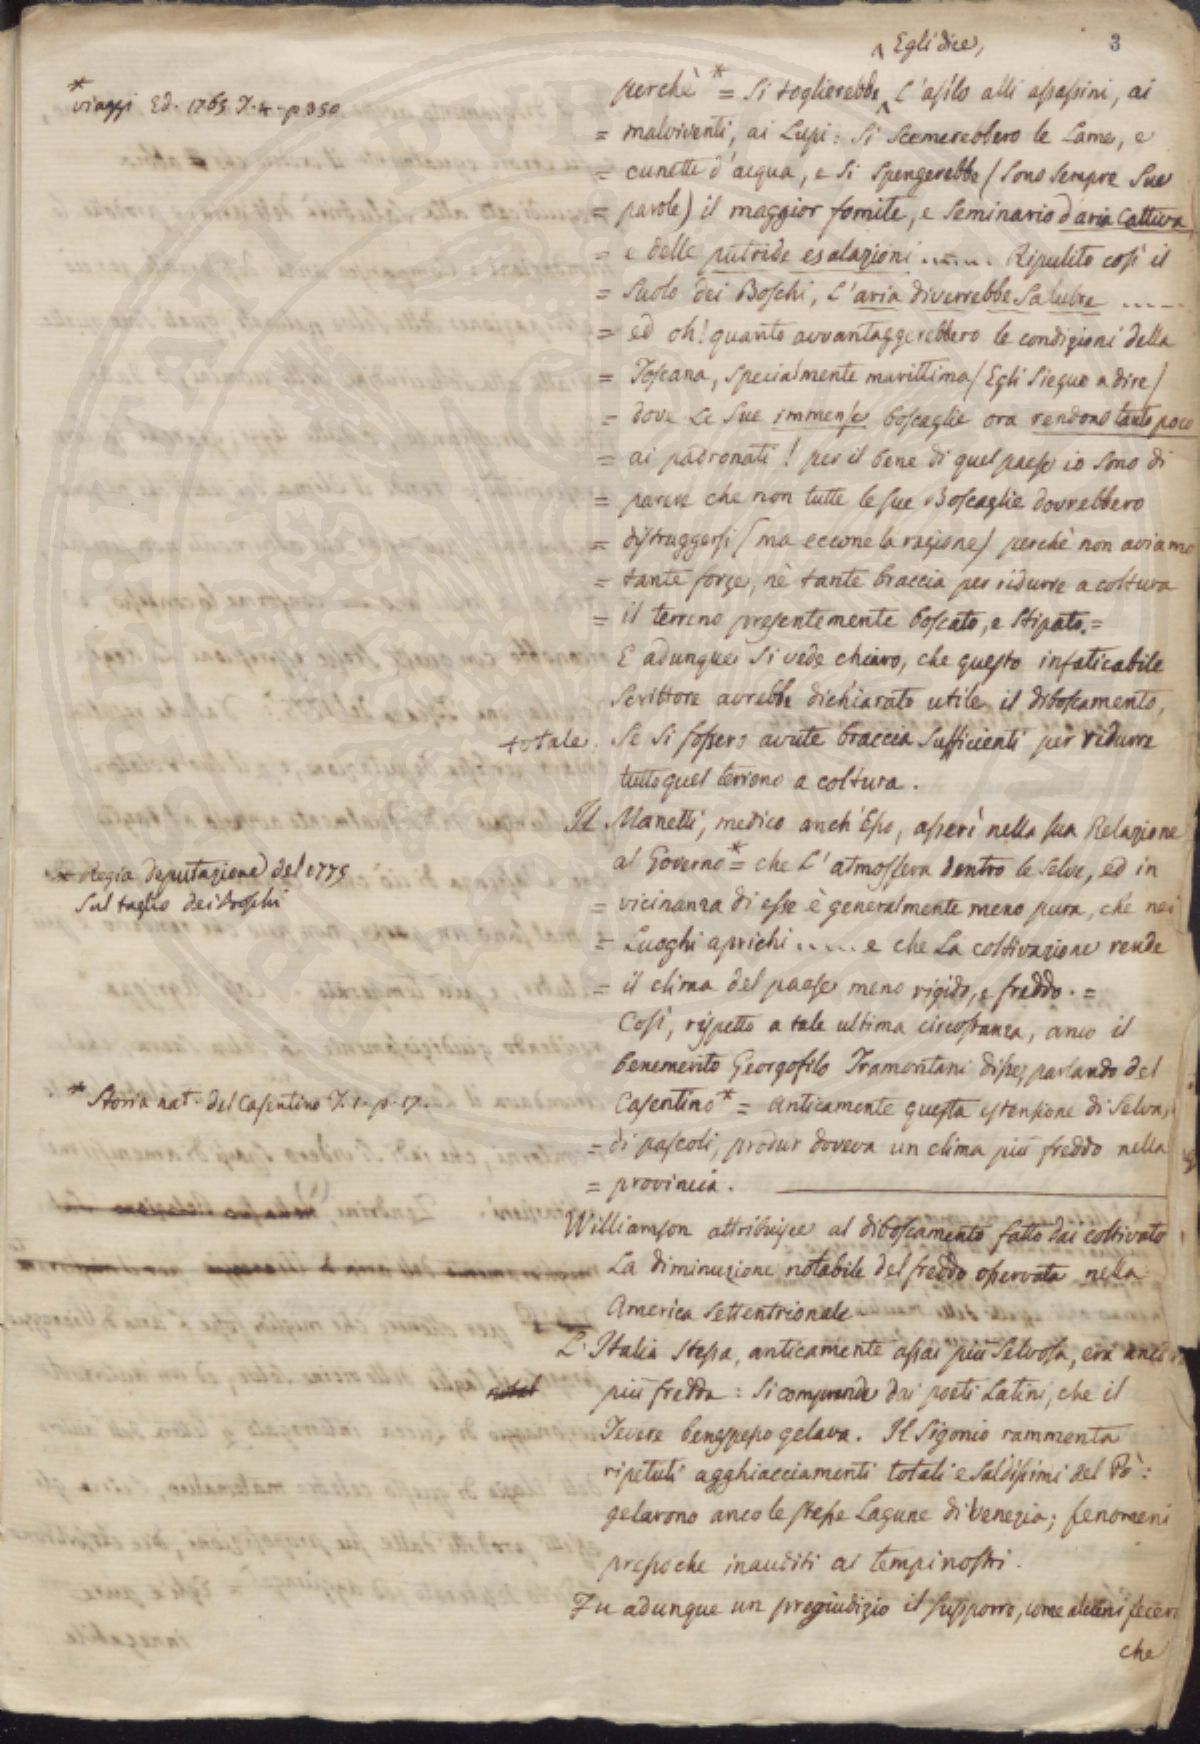 Egli dice,
3
* viaggi Ed. 1765. T. 4. p 350.
perchè * = si toglierebbe L'asilo alli assassini, ai
= malviventi, ai Lupi: si scemerebbero le Lame, e
= cunette d'acqua, e si spengerebbe (sono sempre sue
= parole) il maggior fomite, e seminario d'aria cattiva,
= e delle putride esalazioni ...... Ripulito così il
= suolo dei Boschi, L'aria diverrebbe salubre .....
= ed oh! quanto avvantaggerebbero le condizioni della
= Toscana, specialmente marittima (Egli siegue a dire)
= dove Le sue immense boscaglie ora rendono tanto poco
= ai padronati! per il bene di quel paese io sono di
= parere che non tutte le sue Boscaglie dovrebbero
= distruggersi (ma eccone la ragione) perchè non aviamo
= tante forze, nè tante braccia per ridurre a coltura
= il terreno presentemente boscato, e stipato. =
E adunque si vede chiaro, che questo infaticabile
scrittore avrebbe dichiarato utile il diboscamento,
totale. se si fossero avute braccia sufficienti per ridurre
tutto quel terreno a coltura.
Il Manetti, medico anch'Esso, asserì nella sua Relazione
al Governo * = che L'atmosfera dentro le selve, ed in
* Regia deputazione del 1775
sul taglio dei Boschi
= vicinanza di esse è generalmente meno pura, che nei
= Luoghi aprichi ..... e che La coltivazione rende
= il clima del paese meno rigido, e freddo. =
Così, rispetto a tale ultima circostanza, anco il
benemerito Georgofilo Tramontani disse, parlando del
* Storia nat. del Casentino T. 1. p. 17.
Casentino * = Anticamente questa estensione di selva,
= di pascoli, produr doveva un clima più freddo nella
= provincia.
Williamson attribuisce al diboscamento fatto dai coltivato
La diminuzione notabile del freddo osservata nella
America settentrionale
L'Italia stessa, anticamente assai più selvosa, era anco
più fredda: si comprende dai poeti Latini, che il
Tevere bene spesso gelava. Il Sigonio rammenta
ripetuti agghiacciamenti totali e saldissimi del Pò:
gelarono anco le stesse Lagune di Venezia; fenomeni
pressoche inauditi ai tempi nostri.
Fu adunque un pregiudizio il supporre, come alcuni fecero
che